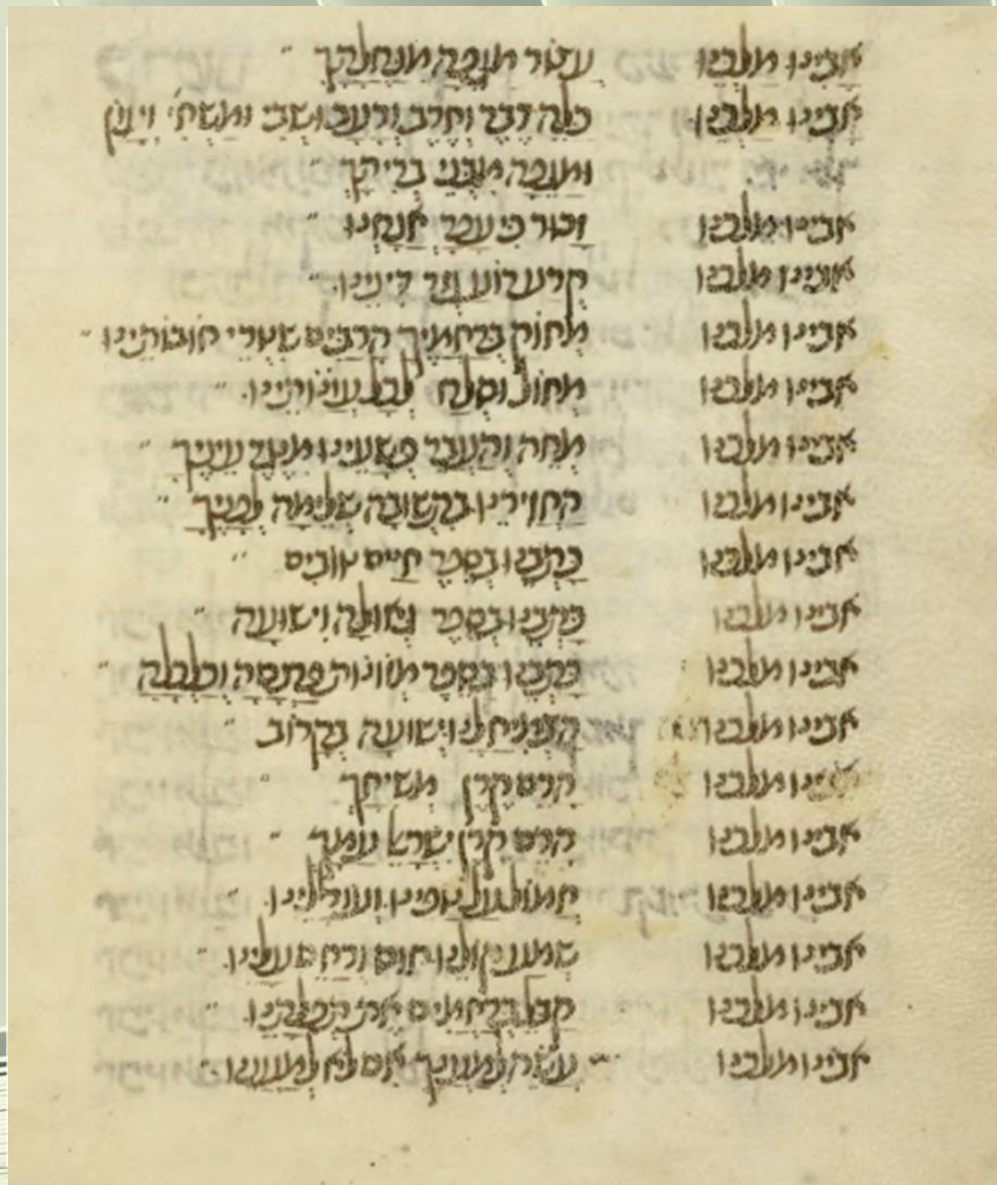 אבינו מלכנו עצור מגפה מנחלתך
אבינו מלכנו כלה דבר וחרב ורעב ושבי ומשחי׳ ועון
ומגפה מבני בריתך
אבינו מלכנו זכור כי עפר אנחנו
אבינו מלכנו קרע רוע גזר דינינו
אבינו מלכנו מחוק ברחמיך הרבים שטרי חובותינו
אבינו מלכנו מחול וסלח לכל עוונותינו
אבינו מלכנו מחה והעבר פשעינו מנגד עיניך
אבינו מלכנו החזירינו בתשובה שלימה לפניך
אבינו מלכנו כתבנו בספר חיים טובים
אבינו מלכנו כתבנו בספר גאולה וישועה
אבינו מלכנו כתבנו בספר מזונות פרנסה וכלכלה
אבינו מלכנו הצמיח לנו ישועה בקרוב
אבינו מלכנו הרם קרן משיחך
אבינו מלכנו הרם קרן ישראל עמך
אבינו מלכנו חמול על טפינו ועוללינו
אבינו מלכנו שמע קולנו חוס ורחם עלינו
אבינו מלכנו קבל ברחמים את תפלתנו
אבינו מלכנו עשה למענך אם לא למעננו